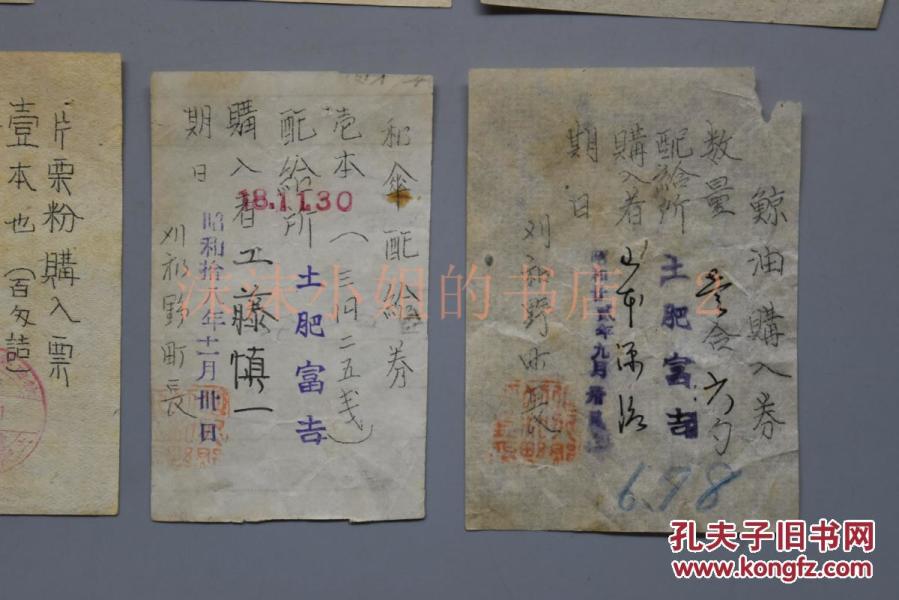 鯨油購入券
数量 壹合六勺
配給所 土肥富吉
購入者 山本
期日 昭和廿貳年九月
刈和野町長
6.98
和傘配給券
壱本(三円二五戋)
配給所 土肥富吉
18.11.30
購入者 工藤慎一
期日 昭和拾八年十一月卅日
刈和野町長
片栗粉購入票
壹本也(百匁詰)
沫沫小姐的书店
孔夫子旧书网
www.kongfz.com